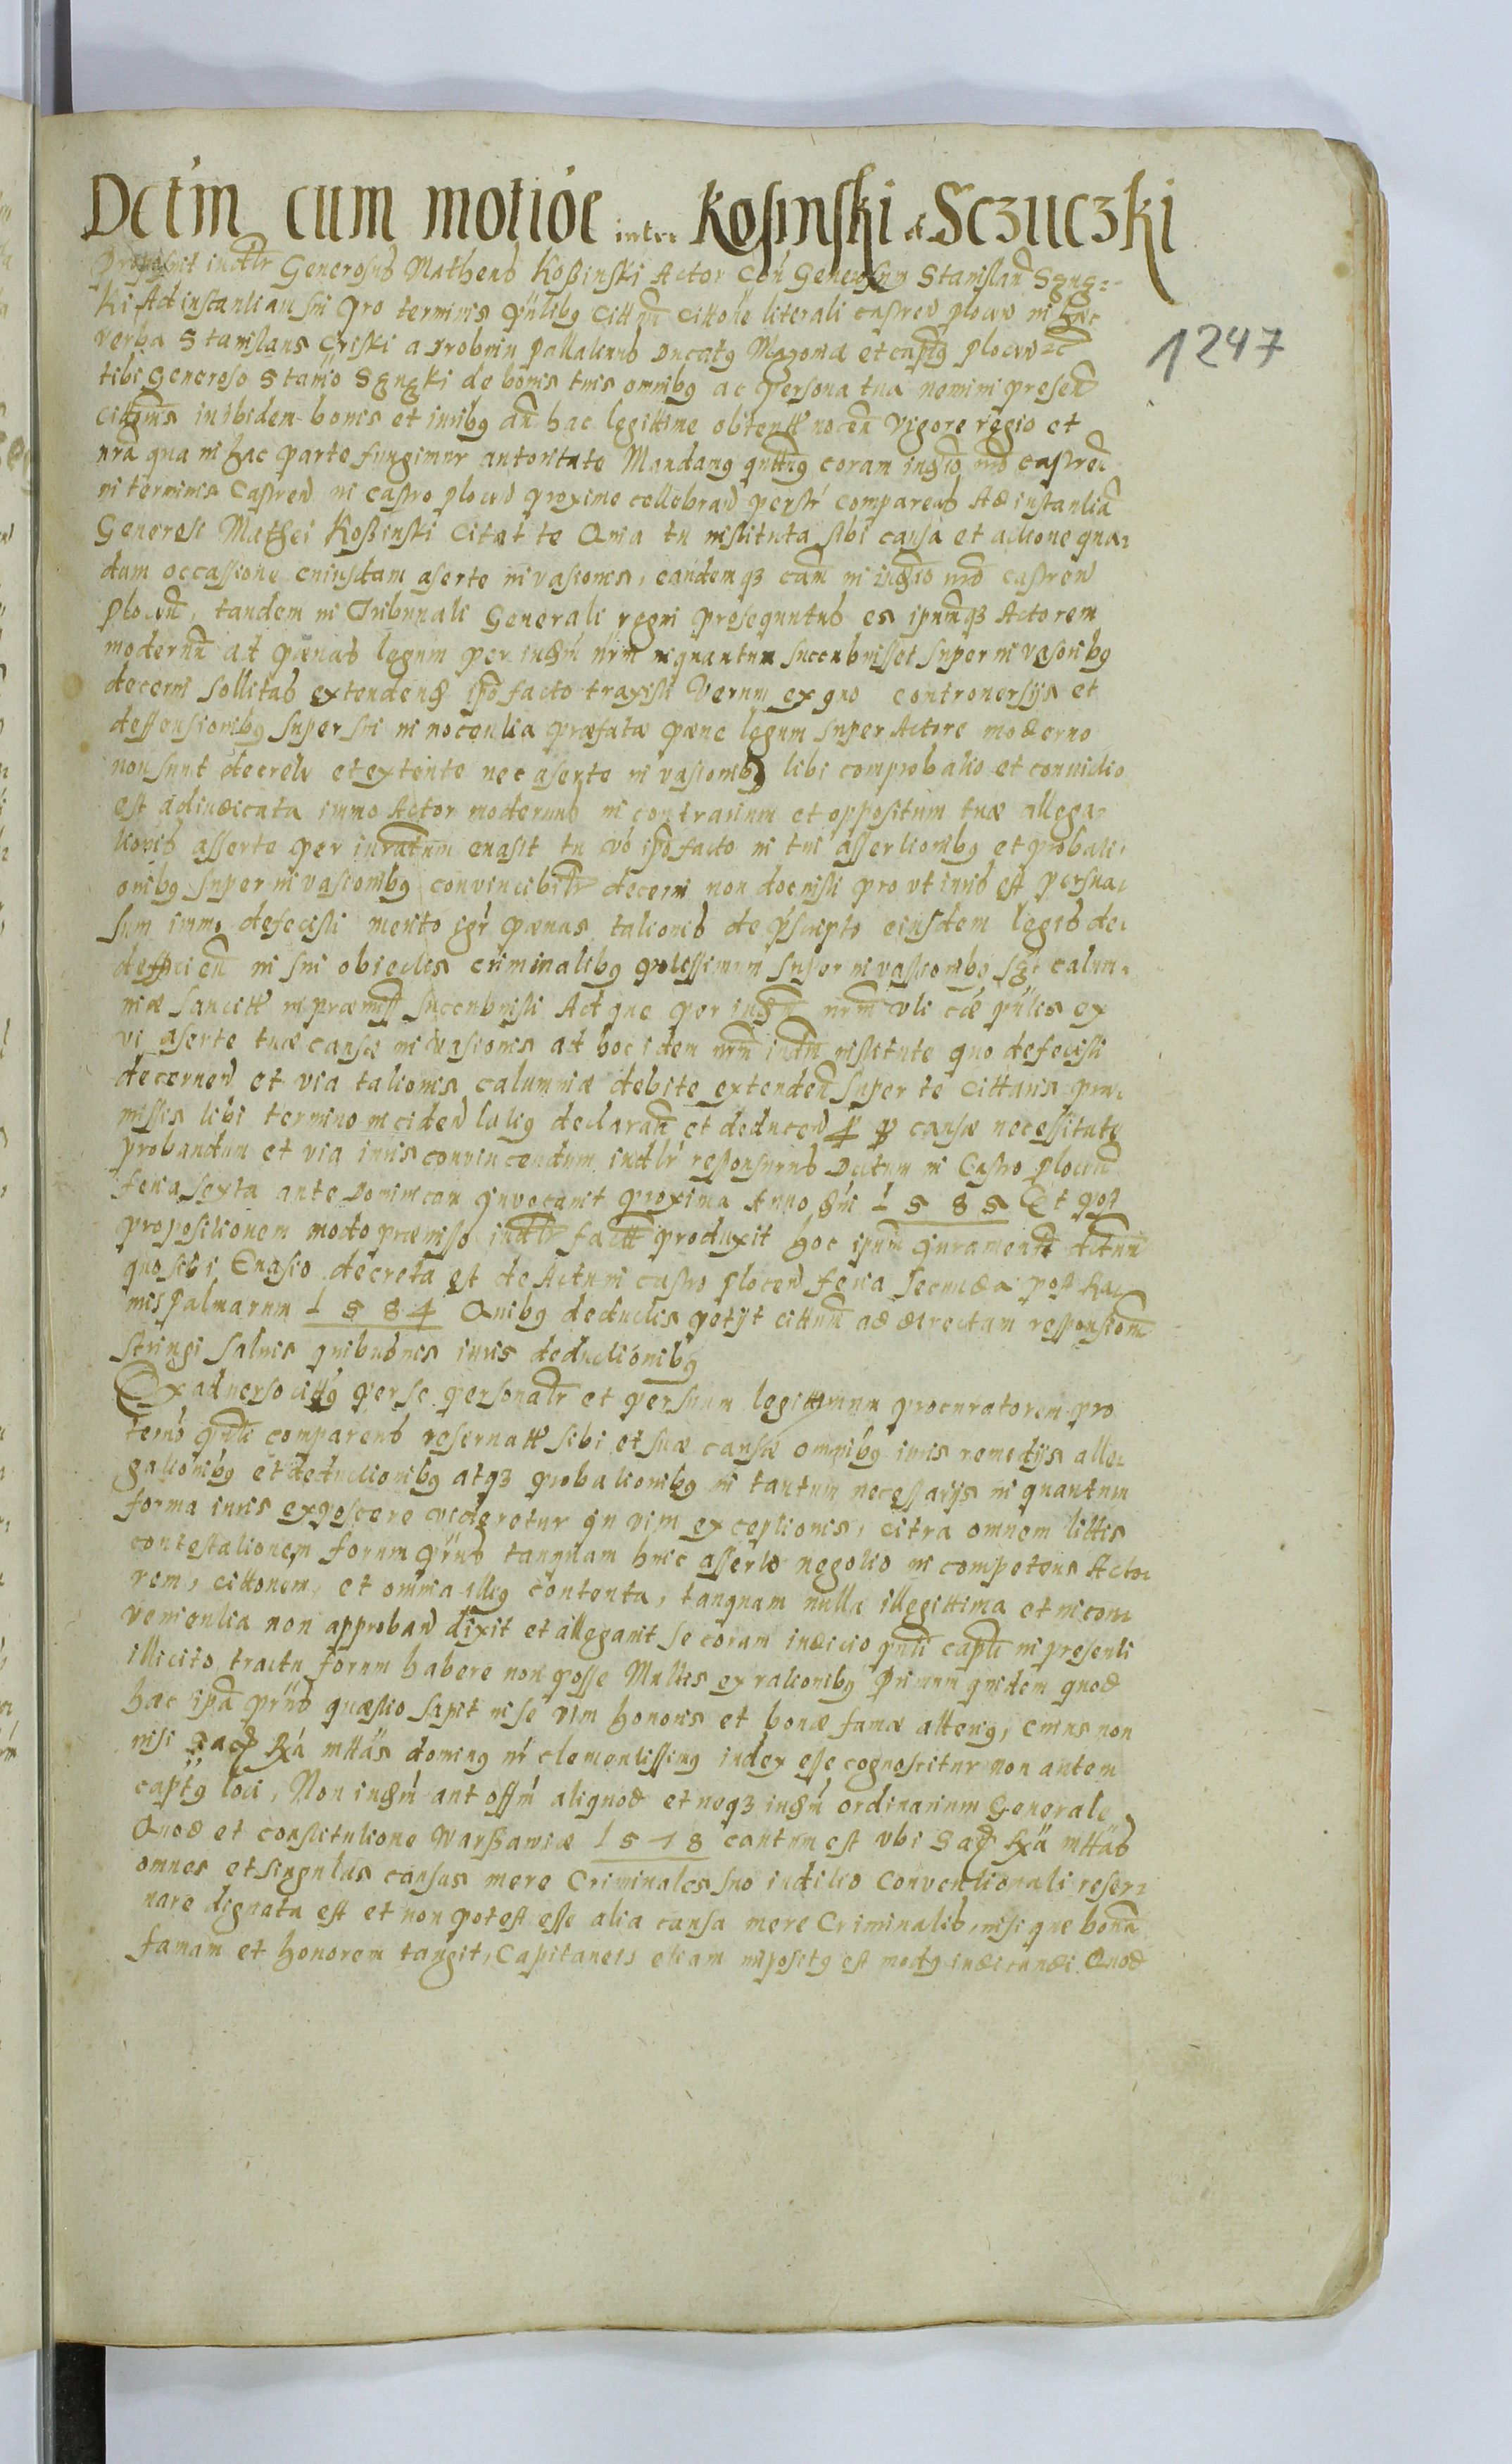 Dctm cum motioe inter Kosinski et Sczuczki
Proposuit iudtr Generosus Matheus Koßinski Actor Con Generosum Stanislau Szuz=
ki Ad instantiam sui pro terminis cittum cittone literali castren plocen in hæc
verba Stanislaus Criski a Drobnin Pallatinus Ducatus Mazoviæ et captus plocen
tibi Generoso Stanio Szuzki de bonis tuis omnibus ac persona tua nemini presen
inibidem bonis et iuribus an hac legittime obtentt nocen Vigore regio et
nra qua in hac parte fungimur autoritate Mandamus quttus coram iudio nro castren
in terminis Castren in castro plocen proxime cellebran perstr compareas Ad instantia
Generosi Mathei Koßinski Citat te Quia tu instituta sibi causa et actione qua=
dam occassione cuiusdam aserte invasionis, eandemq3 cam in iudio nro castren
plocen, tandem in Tribunali Generali regni prosequutus es ipsumq3 Actorem
modernu ad pænas legum per iudm nrm inquantum succubuisset super invasoribus
decerni sollitas extendendas ipo facto traxisti Verum ex quo controversijs et
deffensionibus super sui innocentia præfatæ pænæ legum super Actore moderno
non sunt decrete et extente nec aserte invasionis tibi comprobatio et convictio
est adiudicata immo Actor modernus in contrarium et oppositum tuæ allega=
tionis asserte per iuratum evasit tu vo ipo facto in tui assertionibus et probati=
onibus super invasionibus convincibilr decerni non docuisti pro ut iuris est persua=
sum immo defecisti merito igr pænas talionis de pscripto eiusdem legis de=
in sui obiectis criminalibus potissimum super invassionibus calum=
niæ sancitt in præmisst succubuisti Ad que per iudm nrm uti ex
vi aserte tuæ causæ invasionis ad hoc idem nrm iudm institute quo defecisti
decernen et via talionis calumniæ debite extenden super te cittaris præ=
missis tibi termino in eiden latius declaran et deducen causæ necessitate
probandum et via iuris convincendum iudlr responsurus Dattum in Castro plocen
feria sexta ante Dominicam Invocavit proxima Anno dni 1585 Et post
propositionem modo præmisso iudtr factt produxit hoc ipsum Iurament
quo sibi Evasio decreta est de Actu in castro plocen feria secunda post Ra=
mis palmarum 1584 Quibus deductis petijt cittum ad directam responsionem
stringi salvis quibusvis iuris deductionibus
Ex adverso cittus per se personalr et per suum legittimum procuratorem pro
comparens reservatt sibi et suæ causæ omnibus iuris remedijs alle=
gationibus et deductionibus atq3 probationibus in tantum necessarijs in quantum
forma iuris exposcere videretur In vim exceptionis, citra omnem littis
contestationem forum pñs tanquam huic asserto negotio in competens Acto=
rem, cittonem, et omnia illius contenta, tanquam nulla illegittima et incon=
venientia non approban dixit et allegavit se coram iudicio pnti captli in presenti
illicito tractu forum habere non posse Multis ex rationibus Primum quidem quod
hæc ipa pñs quæstio sapit in se vim honoris et bonæ famæ attentus, cuius non
nisi Sac Ra mttas dominus nr clementissimus iudex esse cognoscitur non autem
captus loci, Non iudm aut offm aliquod et neq3 iudm ordinarium Generale
Quod et constitutione Warßawiæ 1578 cautum est ubi Sac Ra mttas
omnes et singulas causas mere Criminales suo iuditio Conventionali reser=
vare dignata est et non potest esse alia causa mere Criminalis, nisi que bona
famam et honorem tangit, Capitaneis etiam impositus est modus iudicandi. Quod
1247